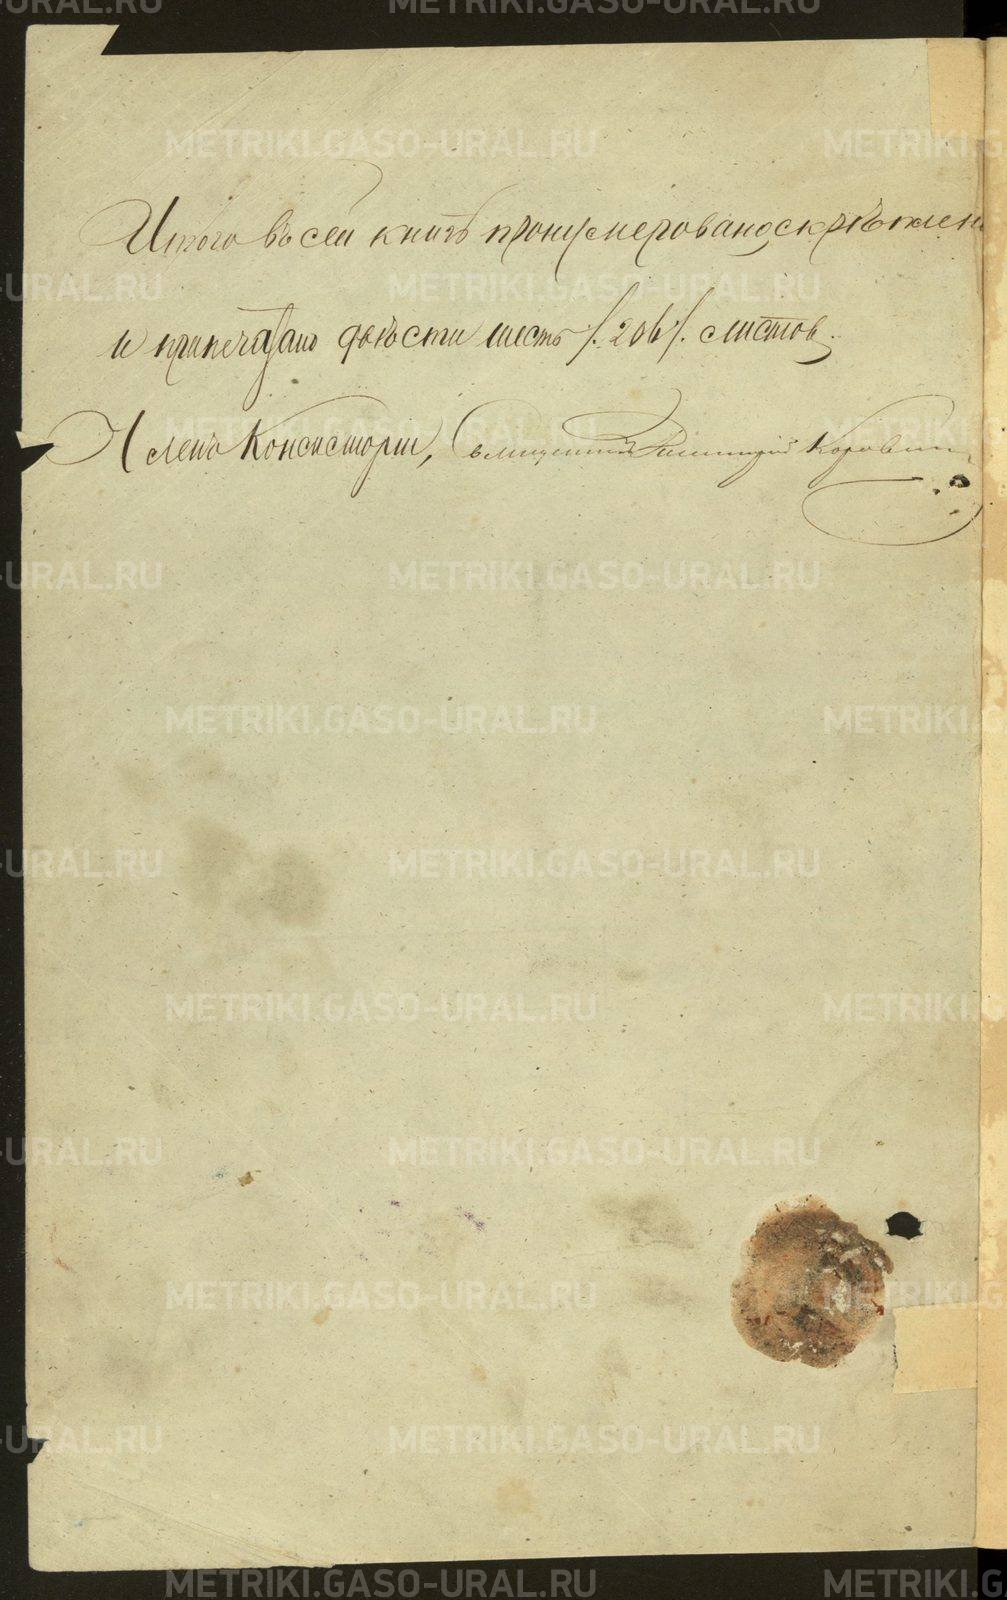 Итого въ сей книгѣ пронумеровано, скрѣплен
и припечатано двѣсти шесть /.206/. листов.
Членъ Консисторіи, Священникъ Коровин
METRIKI.GASO-URAL.RU